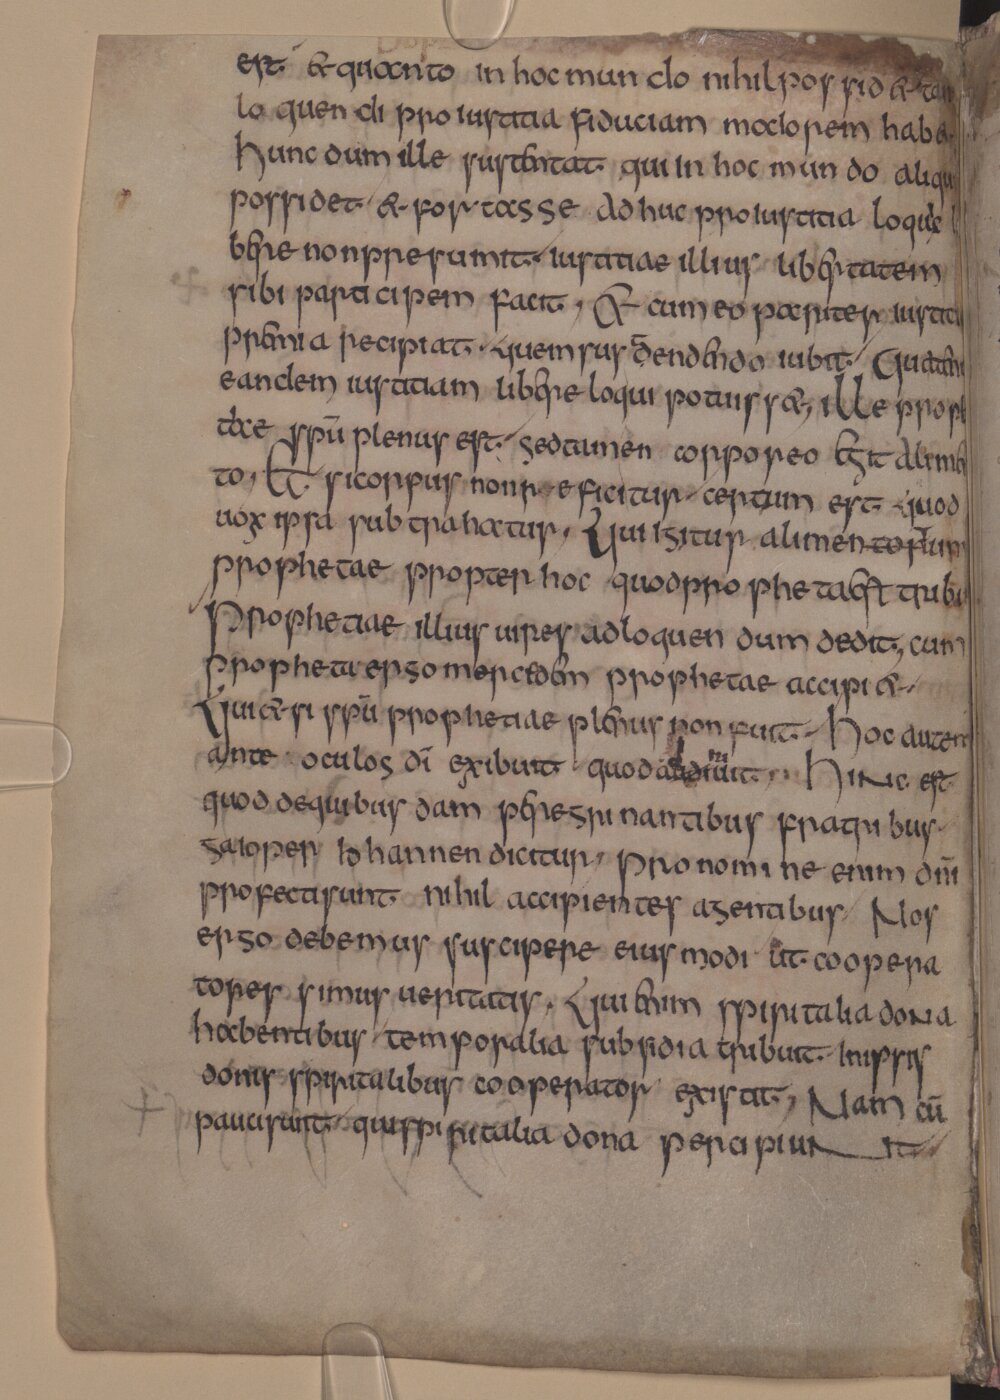 est & quanto in hoc mundo nihil possid& tan
loquendi pro iustitia fiduciam modo rem hab&
hunc dum ille sustentat qui in hoc mundo aliqu
possidet & fortasse adhuc pro iustitia loqui l
bere non presumit iustitiae illius libertatem
sibi participem facit, & cum eo pariter iustiti
premia recipiat quem sus dendendo iubit
eandem iustitiam libere loqui potuiss&, ille proph
tae spū plenus est sed tamen corporeo alim
to, Et si corpus non reficitur certum est quod
uox ipsa subtrahatur, Qui igitur alimen
prophetae propter hoc quod proph& est tribu
Prophetiae illius uires ad loquendum dedit, cum
propheta ergo mercedem prophetae accipi&
Qui & si spū prophetiae plenus non fuit hoc autem
ante oculos dī exibuit quod Hinc est
quod de quibus dam peregrinantibus fratribus
gaio per Iohannen dicitur, pro nomine enim dnī
profecti sunt nihil accipientes a gentibus Nos
ergo debemus suscipere eius modi ut coopera
tores simus ueritatis, Qui enim spiritalia dona
habentibus temporalia subsidia tribuit in ipsis
donis spiritalibus cooperator existit, Nam cū
pauci sunt qui spiritalia dona percipiunt